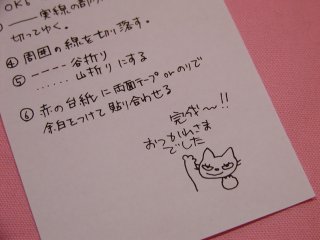 OK6
——— 実線の部分
切ってゆく。
④ 周囲の線を切り落す。
⑤ ---- 谷折り
...... 山折り にする
⑥ 赤の台紙に両面テープorのりで
余白をつけて貼り合わせる
完成〜!!
おつかれさま
でした